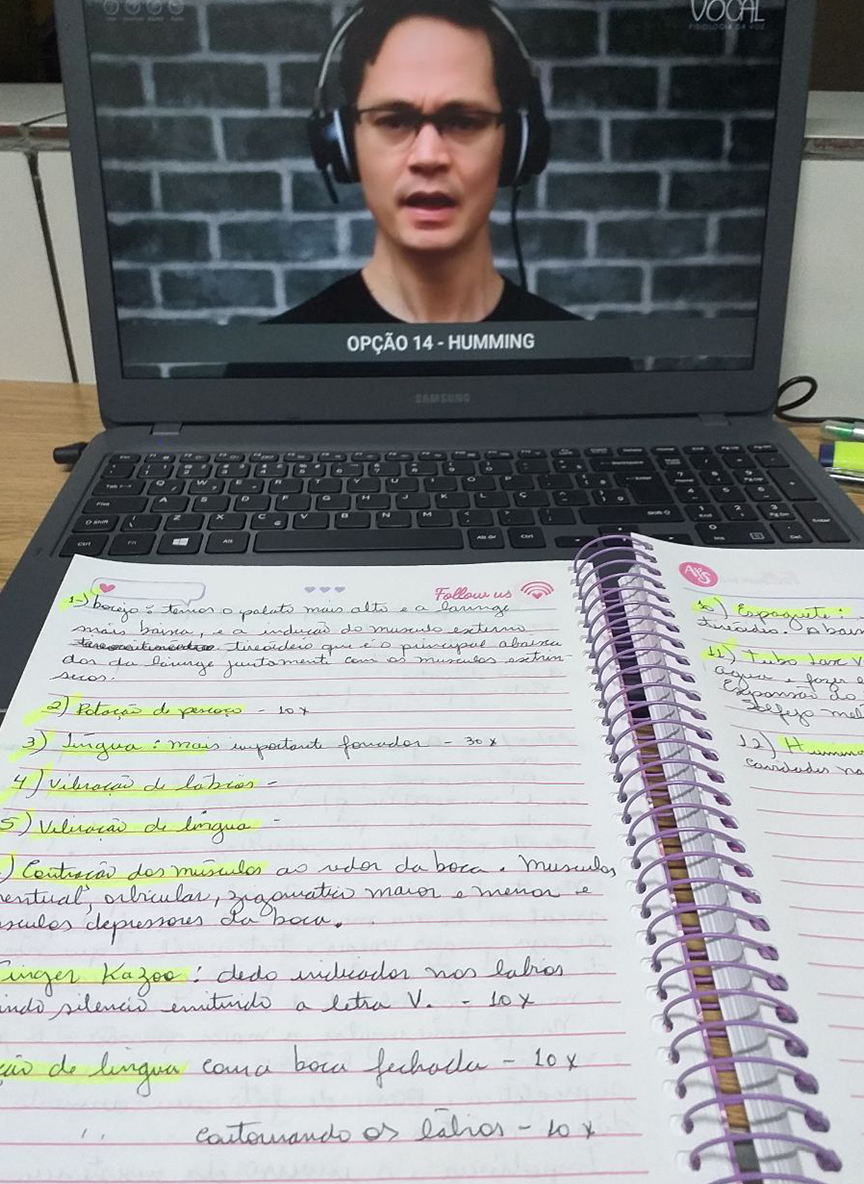 VOCAL
FISIOLOGIA DA VOZ
OPÇÃO 14 - HUMMING
SAMSUNG
Follow us
1-) bocejo: temos o palato mais alto e a laringe
mais baixa, e a indução do musculo externo
tireoideio que é o principal abaixa
dor da laringe juntamente com os musculos extrin
secos.
2) Rotação de pescoço - 10 x
3) língua: mais importante fonador - 30 x
4) Vibração de lábios -
5) Vibração de língua -
) Contração dos músculos ao redor da boca. Musculos
orbicular, zigomatico maior e menor e
sculos depressores da boca.
Finger Kazoo: dedo indicador nos labios
indo silencio emitindo a letra V. - 10 x
ção de língua com a boca fechada - 10 x
contornando os lábios - 10 x
A&S
10) Espaguete:
tireoideo. Abaix
11) Tubo Lax V
agua e fazer e
Expansão do
Solfejo mel
12) Hummin
cavidades na